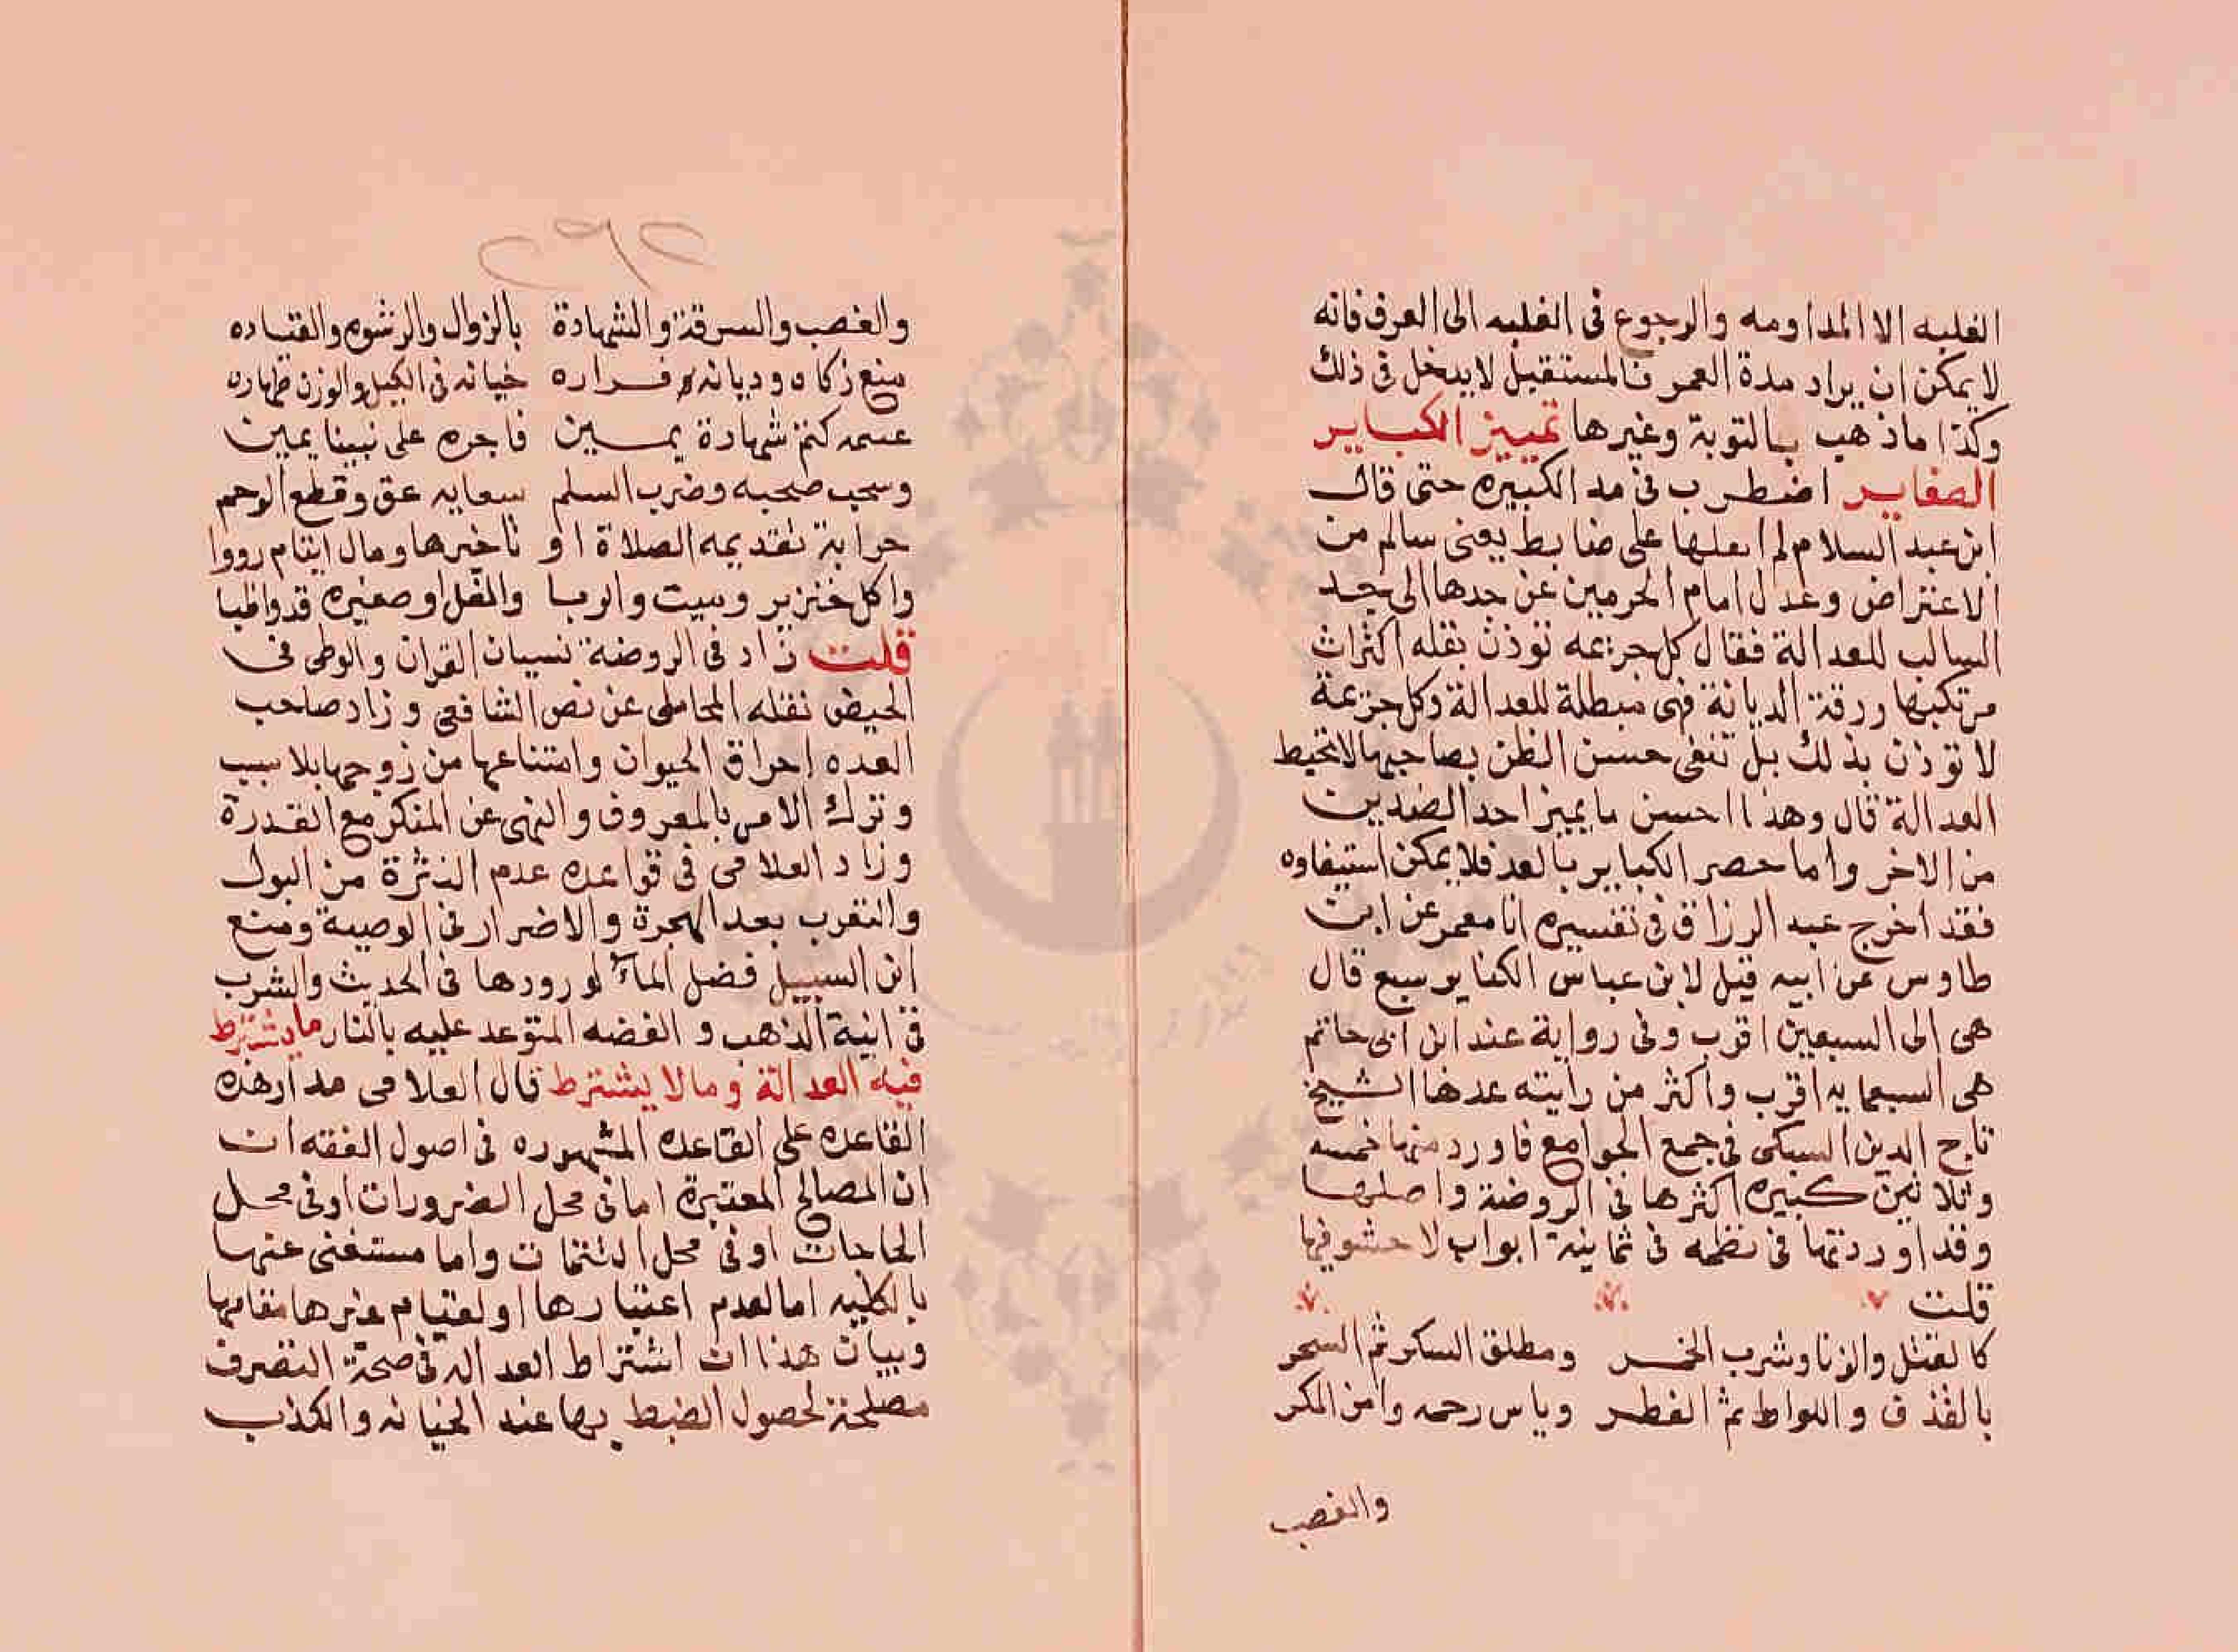 الغلبه الا المداومه والرجوع في الغلبه الى العرف فانه
لا يمكن ان يراد مدة العمر فالمستقبل لا يدخل في ذلك
وكذا ما ذهب بالتوبة وغيرها تمييز الكباير
الصغاير اضطرب في حد الكبيره حتى قال
ابن عبد السلام لم اعلها على ضابط يعني سالم من
الاعتراض وعدل امام الحرمين عن حدها الى حد
السالب للعدالة فقال كل جريمه توذن بقله اكتراث
مرتكبها ورقة الديانة فهي مبطلة للعدالة وكل جريمة
لا توذن بذلك بل تنفى حسن الظن بصاحبها لا تحيط
العدالة قال وهذا احسن ما يميز احد الضدين
من الاخر واما حصر الكباير بالعد فلا يمكن استيفاوه
فقد اخرج عبد الرزاق في تفسيره انا معمر عن ابن
طاوس عن ابيه قيل لابن عباس الكباير سبع قال
هي الى السبعين اقرب وفي رواية عند ابن ابي حاتم
هي السبعمايه اقرب واكثر من رايته عدها الشيخ
تاج الدين السبكي في جمع الجوامع فاورد منها خمسه
وثلاثين كبيره اكثرها في الروضة واصلها
وقد اوردتها في نظمه في ثمانية ابواب لا حشو فيها
قلت
كالقتل والزنا وشرب الخمر ومطلق السكر ثم السحر
بالقذف واللواط ثم الفطر وياس رحمه وامن المكر
والغصب
٢٩٢
والغصب والسرقة والشهادة بالزول والرشوه والقتاده
منع زكاه وديانه فراره خيانه في الكيل والوزن ظهاره
كتم شهادة يمين فاجره على نبينا يمين
وسب صحبه وضرب المسلم سعايه عق وقطع الرحم
حرابة تقديمه الصلاة او تاخيرها ومال ايتام رووا
واكل خنزير وميت والربا والغل او صغيره قد واظبا
قلت زاد في الروضة نسيان القران والوطى في
الحيض نقله المحاملى عن نص الشافعي وزاد صاحب
العده احراق الحيوان وامتناعها من زوجها بلا سبب
وترك الامر بالمعروف والنهى عن المنكر مع القدرة
وزاد العلامى في قواعده عدم النثرة من البول
والتغرب بعد الهجرة والاضرار في الوصية ومنع
ابن السبيل فضل الماء لورودها في الحديث والشرب
في انية الذهب والفضه المتوعد عليه بالنار ما يشترط
فيه العدالة وما لا يشترط قال العلامى مدار هذه
القاعده على القاعده المشهوره في اصول الفقه ان
ان المصالح المعتبرة اما في محل الضرورات او في محل
الحاجات او في محل التتمات واما مستغنى عنها
بالكليه اما لعدم اعتبارها او لقيام غيرها مقامها
وبيان هذا ان اشتراط العداله في صحة التصرف
مصلحة لحصول الضبط بها عند الخيانه والكذب